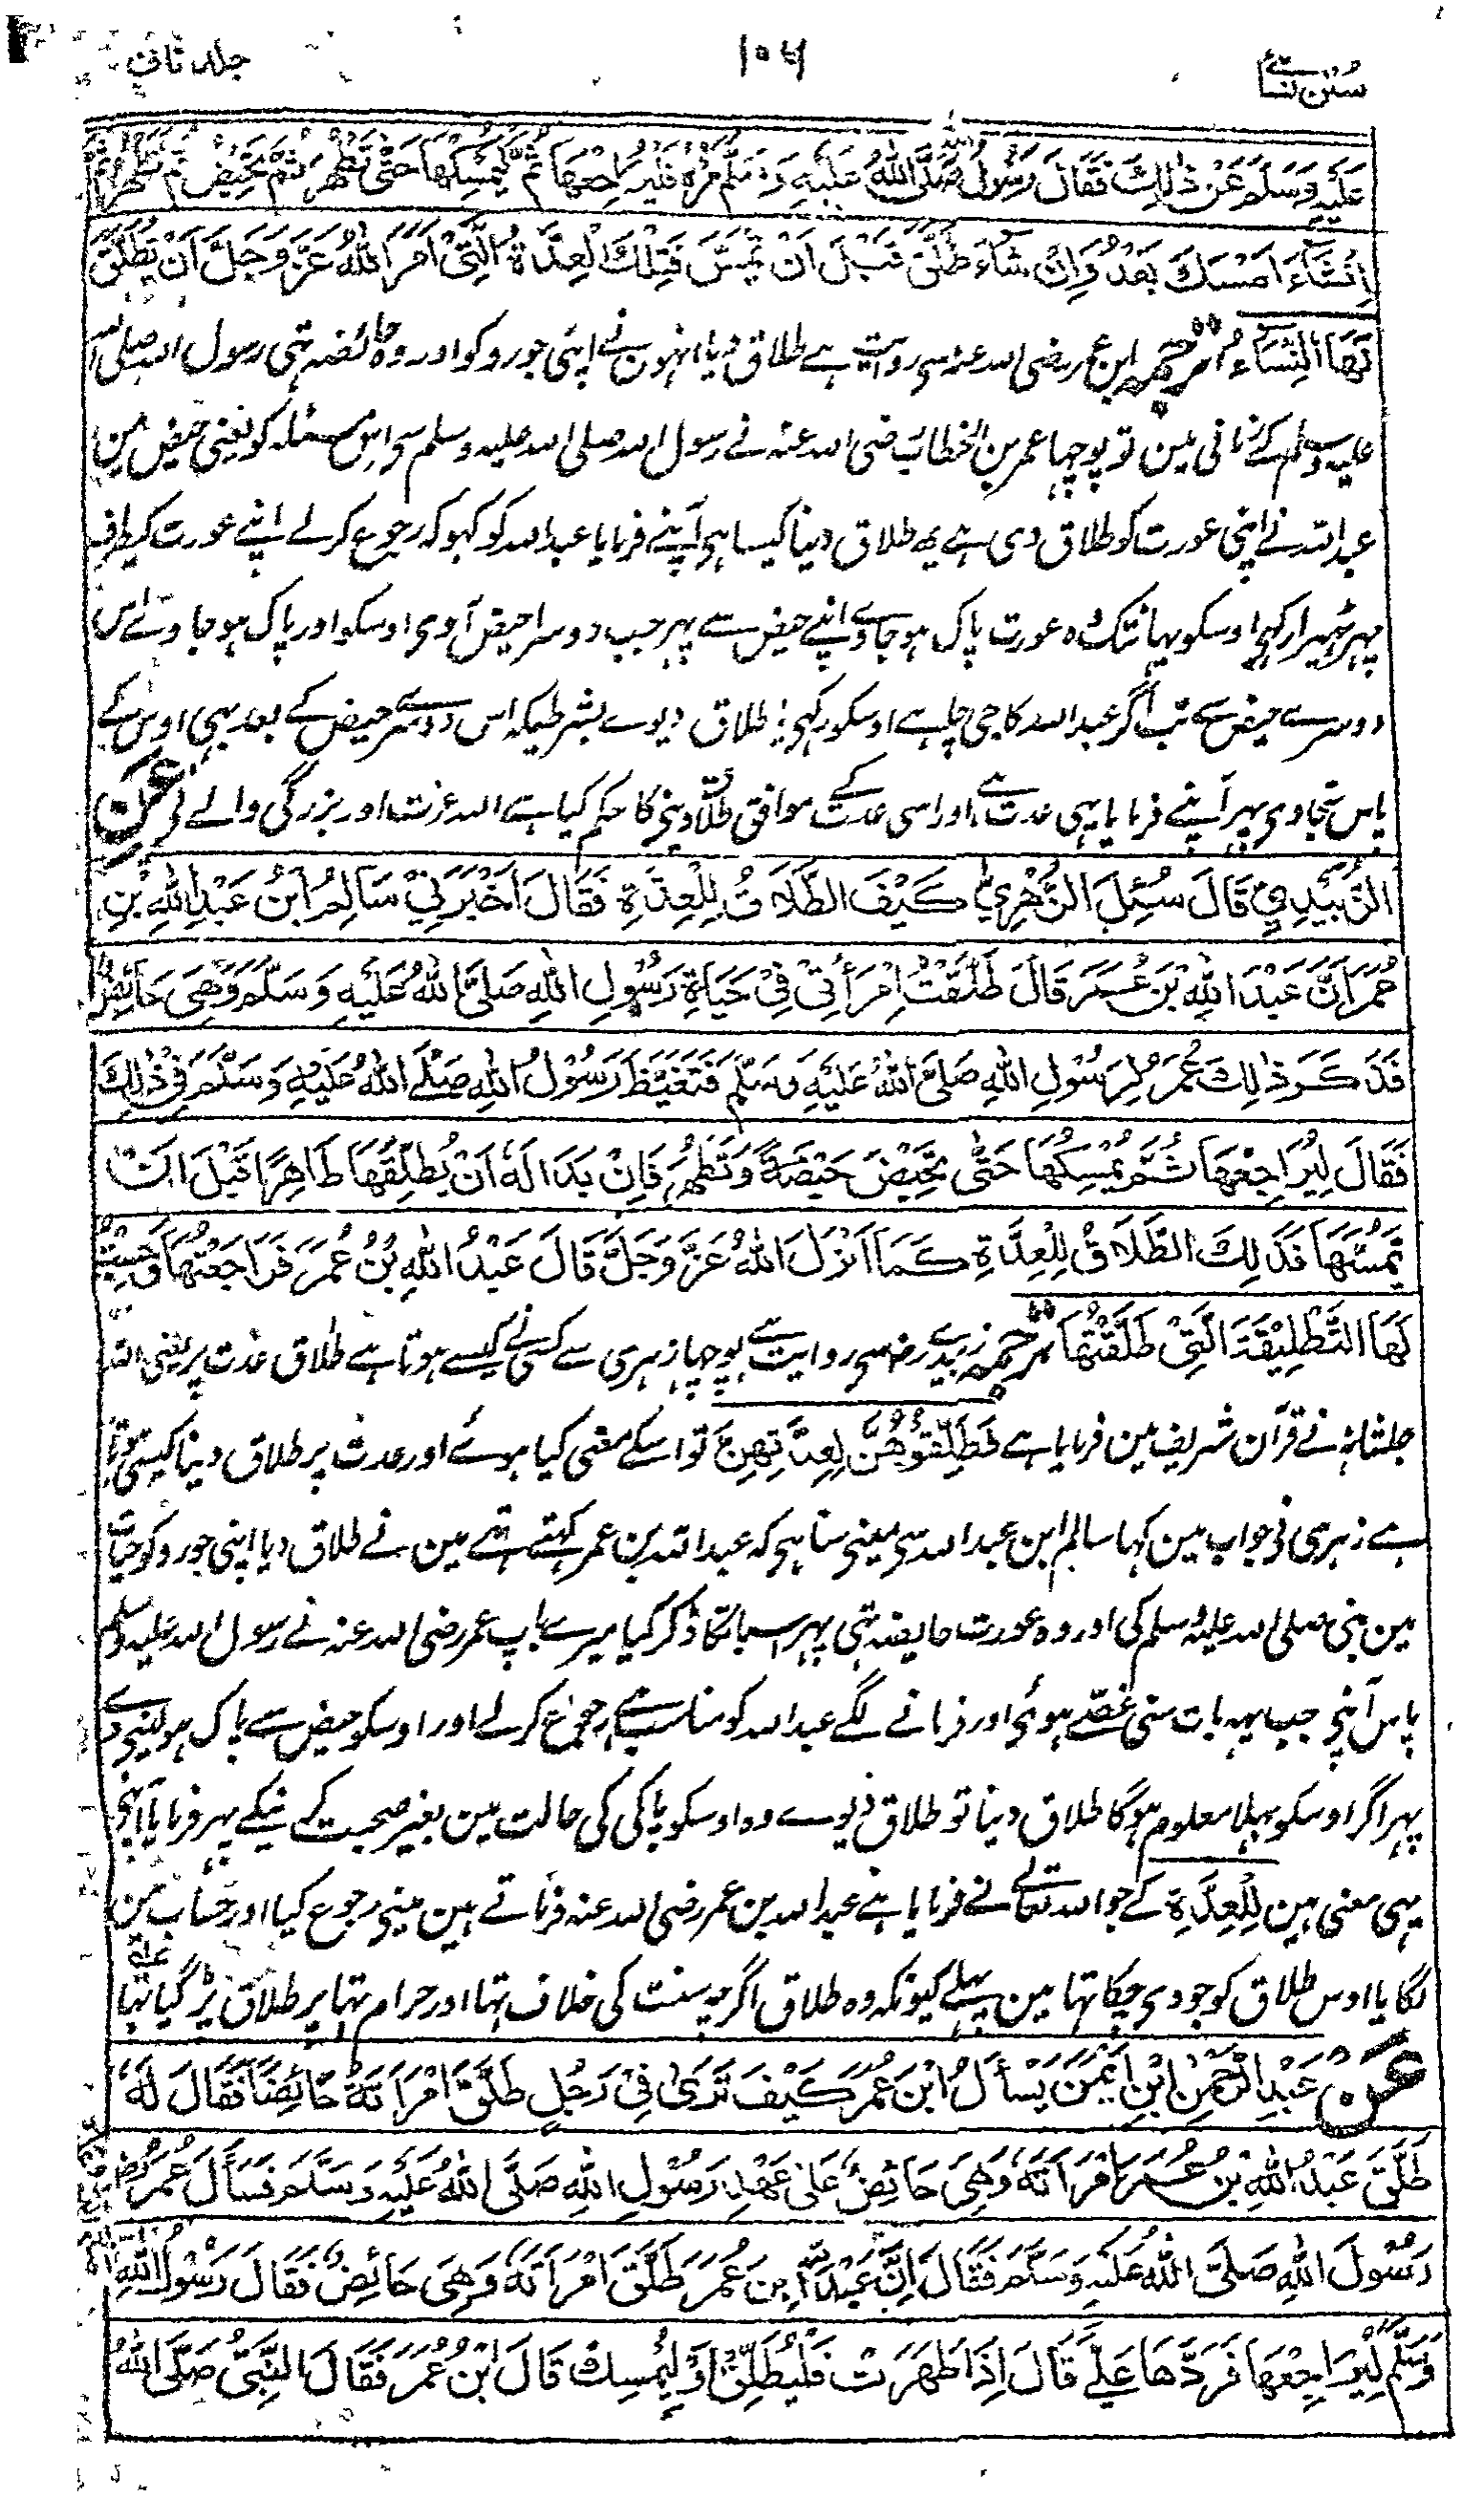 سنن نسائی ۱۰۶ جلد ثانی
عَلَيْهِ وَسَلَّمَ عَنْ ذٰلِكَ فَقَالَ رَسُوْلُ اللّٰهِ صَلَّى اللّٰهُ عَلَيْهِ وَسَلَّمَ مُرْهُ فَلْيُرَاجِعْهَا ثُمَّ لْيُمْسِكْهَا حَتّٰى تَطْهُرَ ثُمَّ تَحِيْضَ ثُمَّ تَطْهُرَ ثُمَّ
اِنْ شَآءَ اَمْسَكَ بَعْدُ وَاِنْ شَآءَ طَلَّقَ قَبْلَ اَنْ يَّمَسَّ فَتِلْكَ الْعِدَّةُ الَّتِىْ اَمَرَ اللّٰهُ عَزَّ وَجَلَّ اَنْ يُّطَلَّقَ
لَهَا النِّسَآءُ ترجمہ ابن عمر رضی اللہ عنہ سی روایت ہے طلاق دیا انہون نے اپنی جورو کو اور وہ حائضہ تہی رسول اللہ صلی اللہ
علیہ وسلم کے زمانی مین تو پوچہا عمر بن الخطاب رضی اللہ عنہ نے رسول اللہ صلی اللہ علیہ وسلم سی اس مسئلہ کو یعنی حیض مین
عبداللہ نے اپنی عورت کو طلاق دی ہے یہ طلاق دینا کیسا ہی آپنے فرمایا عبداللہ کو کہو کہ رجوع کر لے اپنے عورت کیطرف
پہر ٹہیرا رکہی اوسکو یہانتک وہ عورت پاک ہو جاوے اپنے حیض سے پہر جب دوسرا حیض آوی اوسکو اور پاک ہو جاوے اس
دوسرے حیض سے تب اگر عبداللہ کا جی چاہے اوسکو رکہی یا طلاق دیوے بشرطیکہ اس دوسرے حیض کے بعد بہی اوس کے
پاس نجاوی پہر آپنے فرمایا یہی عدت ہے اور اسی عدت کے موافق طلاق دینی کا حکم کیا ہے اللہ عزت اور بزرگی والے نی عَنِ
الزُّبَيْدِيِّ قَالَ سُئِلَ الزُّهْرِيُّ كَيْفَ الطَّلَاقُ لِلْعِدَّةِ فَقَالَ اَخْبَرَنِيْ سَالِمُ ابْنُ عَبْدِ اللّٰهِ بْنِ
عُمَرَ اَنَّ عَبْدَ اللّٰهِ بْنَ عُمَرَ قَالَ طَلَّقْتُ امْرَأَتِيْ فِيْ حَيَاةِ رَسُوْلِ اللّٰهِ صَلَّى اللّٰهُ عَلَيْهِ وَسَلَّمَ وَهِىَ حَائِضٌ
فَذَكَرَ ذٰلِكَ عُمَرُ لِرَسُوْلِ اللّٰهِ صَلَّى اللّٰهُ عَلَيْهِ وَسَلَّمَ فَتَغَيَّظَ رَسُوْلُ اللّٰهِ صَلَّى اللّٰهُ عَلَيْهِ وَسَلَّمَ فِىْ ذٰلِكَ
فَقَالَ لِيُرَاجِعْهَا ثُمَّ يُمْسِكْهَا حَتّٰى تَحِيْضَ حَيْضَةً وَتَطْهُرَ فَاِنْ بَدَا لَهٗ اَنْ يُطَلِّقَهَا طَاهِرًا قَبْلَ اَنْ
يَمَسَّهَا فَذٰلِكَ الطَّلَاقُ لِلْعِدَّةِ كَمَا اَنْزَلَ اللّٰهُ عَزَّ وَجَلَّ قَالَ عَبْدُ اللّٰهِ بْنُ عُمَرَ فَرَاجَعْتُهَا وَحَسِبْتُ
لَهَا التَّطْلِيْقَةَ الَّتِىْ طَلَّقْتُهَا ترجمہ زبیدے رضہ سی روایت ہے پوچہا زہری سے کسی نے کیسے ہوتا ہے طلاق عدت پر یعنی اللہ
جلشانہ نے قرآن شریف مین فرمایا ہے فَطَلِّقُوْهُنَّ لِعِدَّتِهِنَّ تو اسکے معنی کیا ہوئے اور عدت پر طلاق دینا کیسی ہوتا
ہے زہری نی جواب مین کہا سالم ابن عبداللہ سی مینی سنا ہی کہ عبداللہ بن عمر کہتے تہے مین نے طلاق دیا اپنی جورو کو حیات
مین نبی صلی اللہ علیہ وسلم کی اور وہ عورت حایضہ تہی پہر اسبات کا ذکر کیا میرے باپ عمر رضی اللہ عنہ نے رسول اللہ علیہ وسلم
پاس آپنی جب یہہ بات سنی غصّے ہوئی اور فرمانے لگے عبداللہ کو مناسب ہے رجوع کر لے اور اوسکو حیض سے پاک ہو لینی دے
پہر اگر اوسکو بہلا معلوم ہوگا طلاق دینا تو طلاق دیوے وہ اوسکو پاکی کی حالت مین بغیر صحبت کے کیئے پہر فرمایا آپنی
یہی معنی ہین لِلْعِدَّةِ کے جو اللہ تعالے نے فرمایا ہے عبداللہ بن عمر رضی اللہ عنہ فرماتے ہین مینی رجوع کیا اور حساب مین
لگایا اوس طلاق کو جو دی چکا تہا مین پہلے کیونکہ وہ طلاق اگرچہ سنت کی خلاف تہا اور حرام تہا پر طلاق پڑ گیا تہا
عَنْ عَبْدِ الرَّحْمٰنِ ابْنِ اَيْمَنَ يَسْأَلُ ابْنَ عُمَرَ كَيْفَ تَرٰى فِىْ رَجُلٍ طَلَّقَ امْرَاَتَهٗ حَائِضًا فَقَالَ لَهٗ
طَلَّقَ عَبْدُ اللّٰهِ بْنُ عُمَرَ امْرَاَتَهٗ وَهِىَ حَائِضٌ عَلٰى عَهْدِ رَسُوْلِ اللّٰهِ صَلَّى اللّٰهُ عَلَيْهِ وَسَلَّمَ فَسَاَلَ عُمَرُ
رَسُوْلَ اللّٰهِ صَلَّى اللّٰهُ عَلَيْهِ وَسَلَّمَ فَقَالَ اِنَّ عَبْدَ اللّٰهِ بْنَ عُمَرَ طَلَّقَ امْرَاَتَهٗ وَهِىَ حَائِضٌ فَقَالَ رَسُوْلُ اللّٰهِ
وَسَلَّمَ لِيُرَاجِعْهَا فَرَدَّهَا عَلَىَّ قَالَ اِذَا طَهَرَتْ فَلْيُطَلِّقْ اَوْ لِيُمْسِكْ قَالَ ابْنُ عُمَرَ فَقَالَ النَّبِىُّ صَلَّى اللّٰهُ